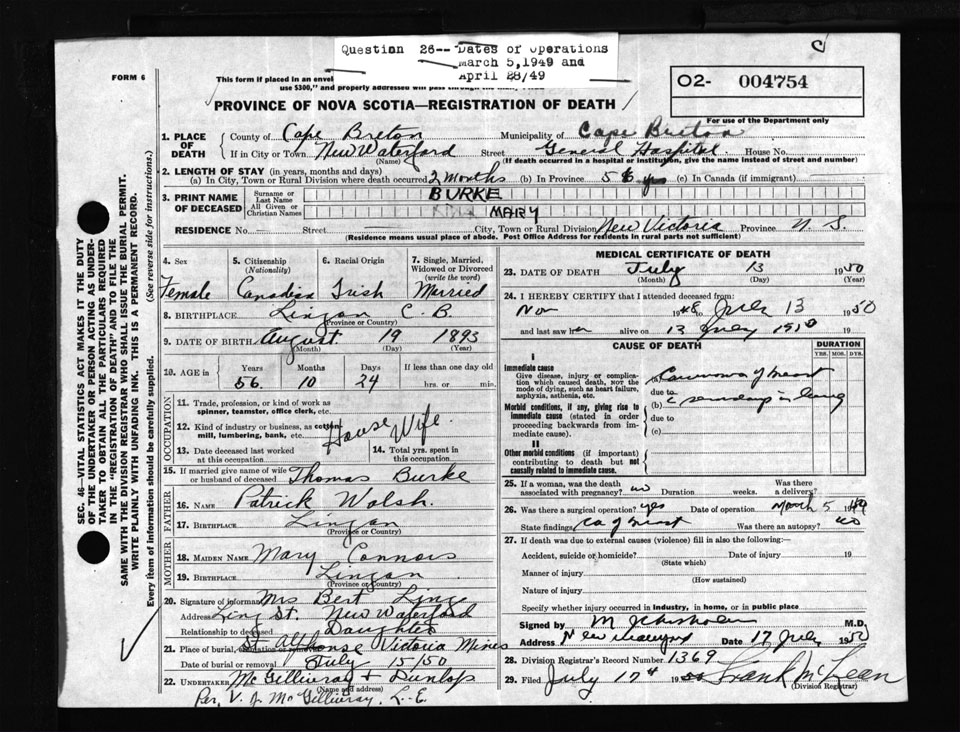 Question 26-- Dates of Operations
March 5,1949 and
April 28/49
FORM 6
This form if placed in an envel
use $300," and properly addressed will pass through the mail
O2- 004754
For use of the Department only
PROVINCE OF NOVA SCOTIA—REGISTRATION OF DEATH
1. PLACE OF DEATH County of Cape Breton Municipality of Cape Breton
If in City or Town New Waterford Street General Hospital House No.
(Name) (If death occurred in a hospital or institution, give the name instead of street and number)
2. LENGTH OF STAY (in years, months and days)
(a) In City, Town or Rural Division where death occurred 2 months (b) In Province 56 yrs (c) In Canada (if immigrant)
3. PRINT NAME OF DECEASED Surname or Last Name BURKE
All Given or Christian Names MARY
RESIDENCE No. Street City, Town or Rural Division New Victoria Province N. S.
(Residence means usual place of abode. Post Office Address for residents in rural parts not sufficient)
4. Sex Female
5. Citizenship (Nationality) Canadian
6. Racial Origin Irish
7. Single, Married, Widowed or Divorced (write the word) Married
8. BIRTHPLACE Lingan C.B.
(Province or Country)
9. DATE OF BIRTH August 19 1893
(Month) (Day) (Year)
10. AGE in Years Months Days If less than one day old
56 10 24 hrs. or min.
OCCUPATION
11. Trade, profession, or kind of work as spinner, teamster, office clerk, etc.
12. Kind of industry or business, as cotton mill, lumbering, bank, etc. House Wife
13. Date deceased last worked at this occupation
14. Total yrs. spent in this occupation
15. If married give name of wife or husband of deceased Thomas Burke
FATHER
16. NAME Patrick Walsh.
17. BIRTHPLACE Lingan
(Province or Country)
MOTHER
18. MAIDEN NAME Mary Connors
19. BIRTHPLACE Lingan
(Province or Country)
20. Signature of informant Mrs Bert
Address St. New Waterford
Relationship to deceased Daughter
21. Place of burial, St Alphonse Victoria Mines
Date of burial or removal July 15/50
22. UNDERTAKER McGillivray + Dunlop
(Name and address)
Per. V. J. McGillivray, L-E.
MEDICAL CERTIFICATE OF DEATH
23. DATE OF DEATH July 13 1950
(Month) (Day)
24. I HEREBY CERTIFY that I attended deceased from:
Nov 1948 to July 13 1950
and last saw her alive on 13 July 1950 19
CAUSE OF DEATH DURATION
YRS. MOS. DYS.
I
Immediate cause
Give disease, injury or complication which caused death, NOT the mode of dying, such as heart failure, asphyxia, asthenia, etc.
(a) Carcinoma of breast
due to
Morbid conditions, if any, giving rise to immediate cause (stated in order proceeding backwards from immediate cause).
(b) c secondary in lung
due to
(c)
II
Other morbid conditions (if important) contributing to death but not causally related to immediate cause.
25. If a woman, was the death associated with pregnancy? no Duration weeks. Was there a delivery?
26. Was there a surgical operation? yes Date of operation March 5 1949
State findings Ca of breast Was there an autopsy? no
27. If death was due to external causes (violence) fill in also the following:
Accident, suicide or homicide? Date of injury 19
(State which)
Manner of injury
(How sustained)
Nature of injury
Specify whether injury occurred in industry, in home, or in public place
Signed by M M.D.
Address Date 17 July 1950
28. Division Registrar's Record Number 1369
29. Filed July 17th 1950 Frank McLean
(Division Registrar)
SEC. 46—VITAL STATISTICS ACT MAKES IT THE DUTY
OF THE UNDERTAKER OR PERSON ACTING AS UNDERTAKER
TO OBTAIN ALL THE PARTICULARS REQUIRED
IN THE "REGISTRATION OF DEATH" AND TO FILE THE
SAME WITH THE DIVISION REGISTRAR WHO SHALL ISSUE THE BURIAL PERMIT.
WRITE PLAINLY WITH UNFADING INK. THIS IS A PERMANENT RECORD.
Every item of information should be carefully supplied. (See reverse side for instructions.)